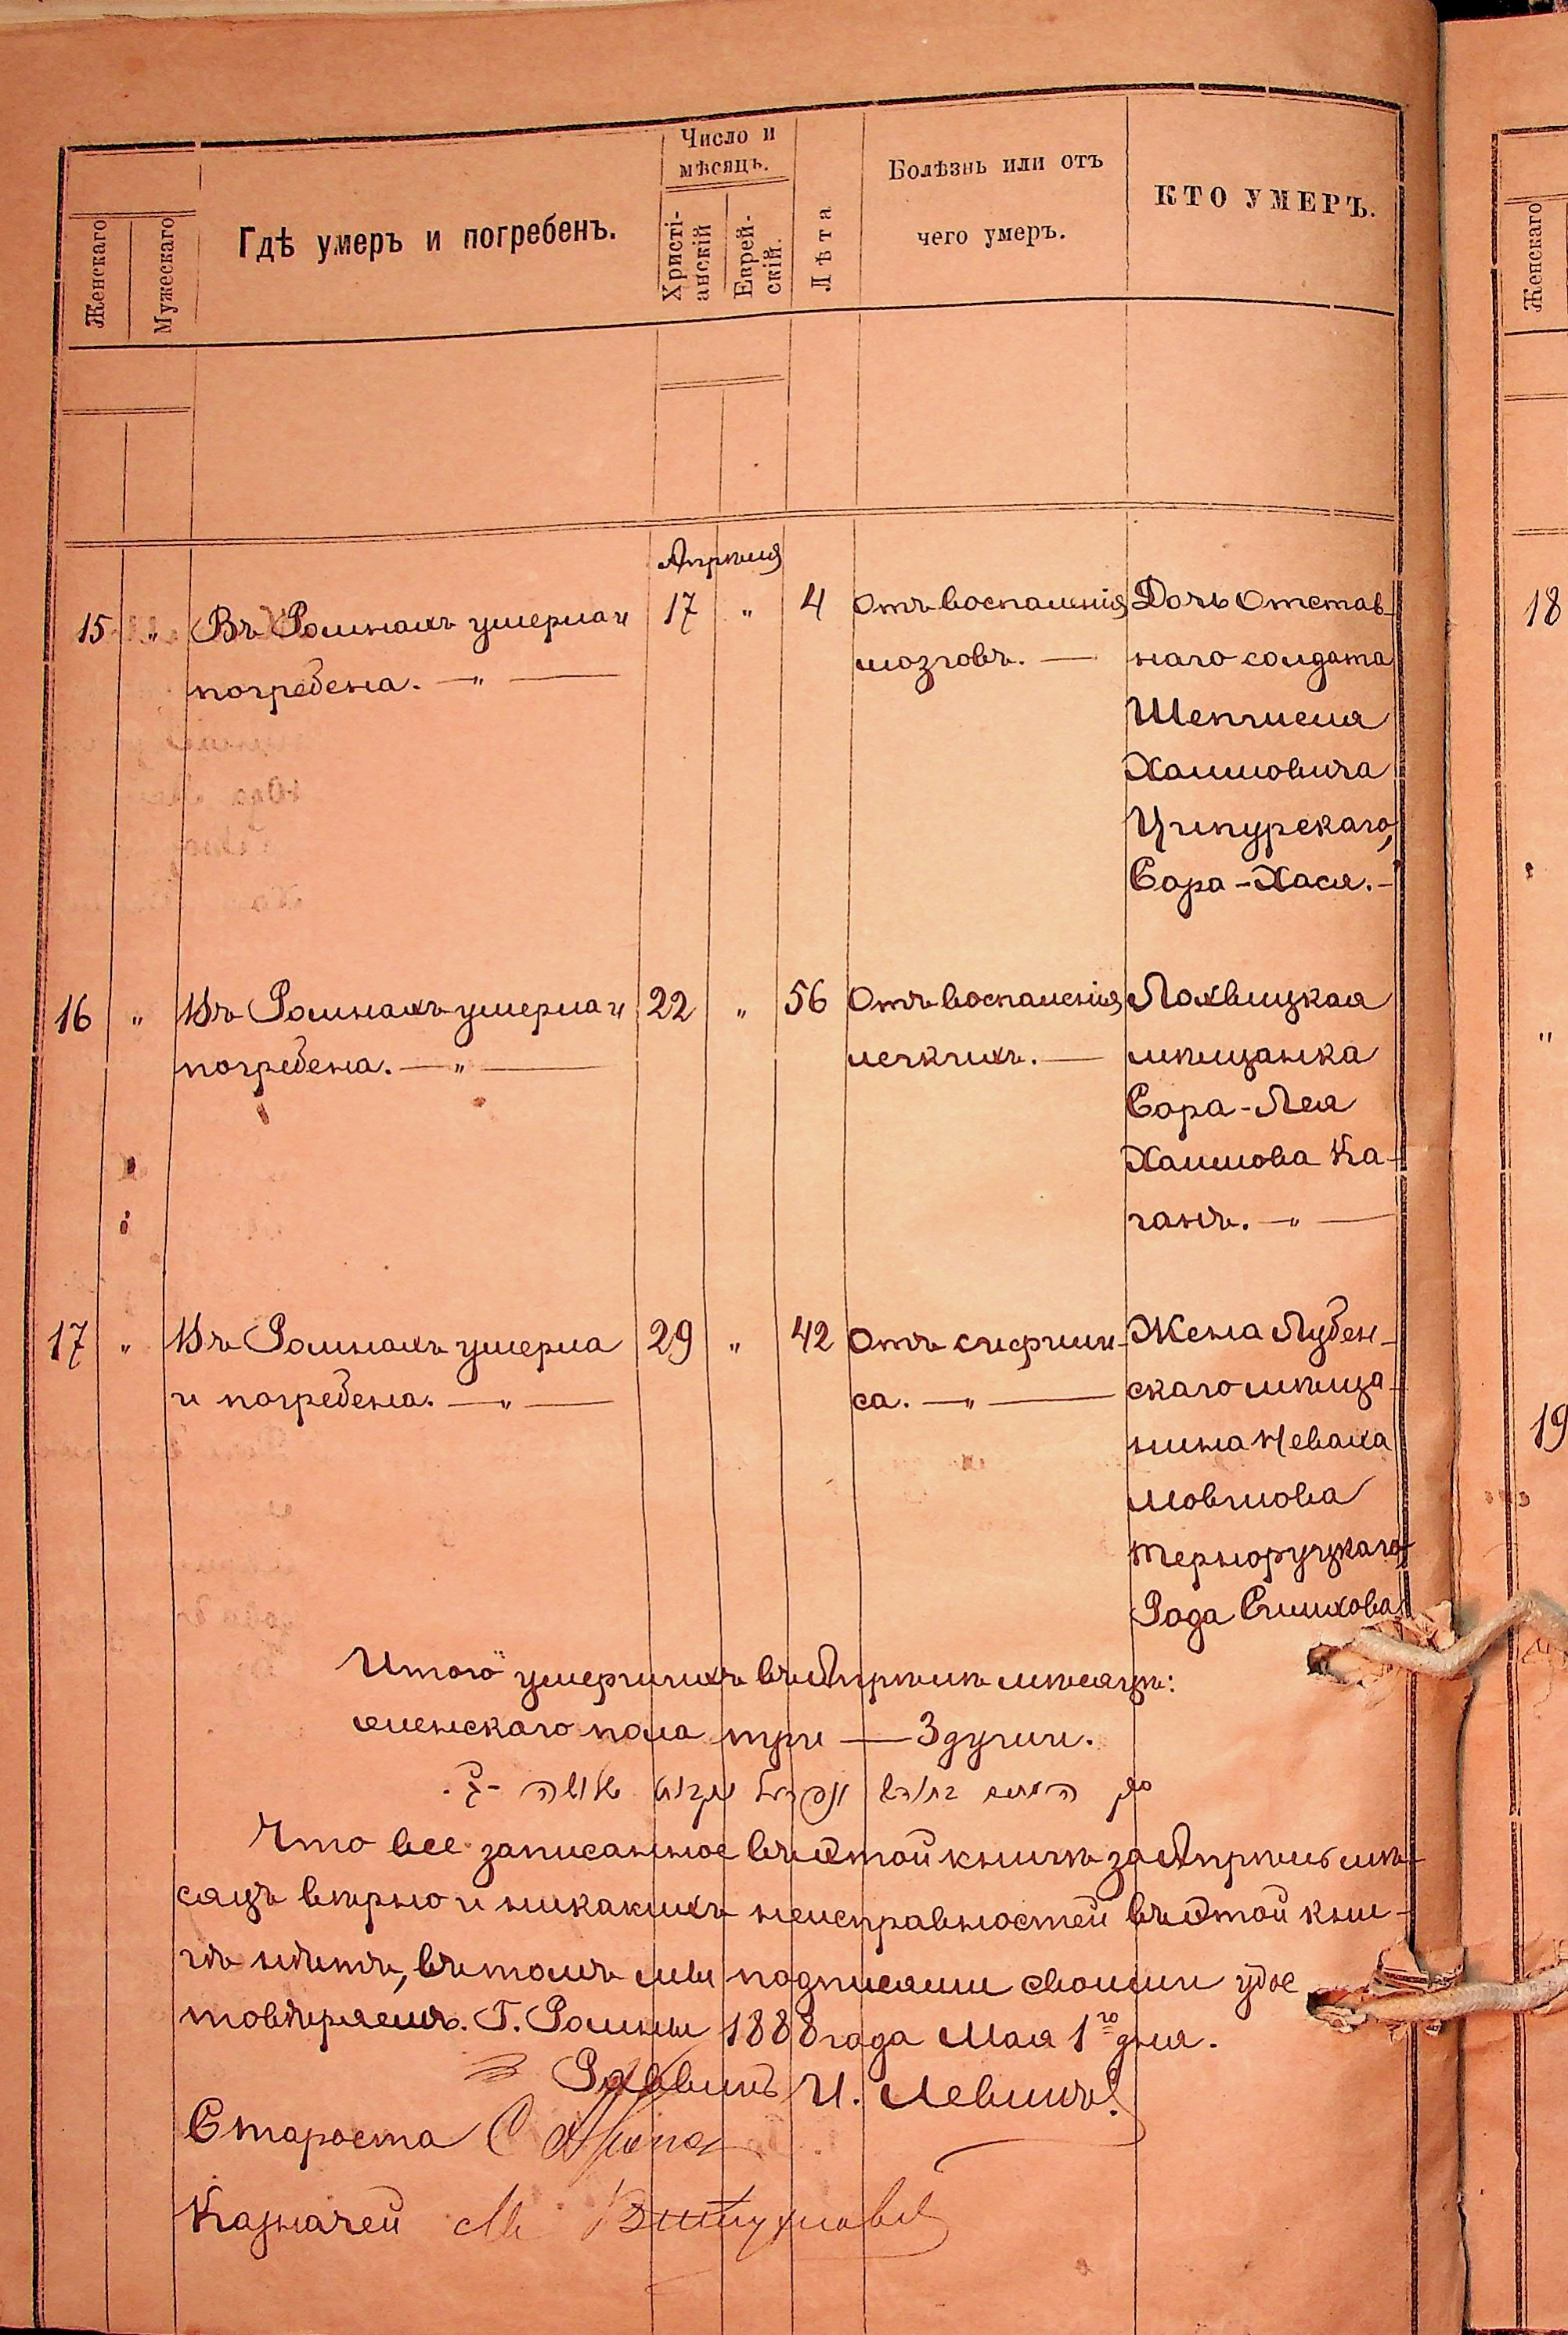 Число и
мѣсяцъ.
Болѣзнь или отъ
чего умеръ.
КТО УМЕРЪ.
Гдѣ умеръ и погребенъ.
Женскаго
Мужескаго
Христі-
анскій
Еврей-
скій.
Лѣта
Женскаго
Апрѣля
15 " Въ Ромнахъ умерла и 17 " 4 Отъ воспаленія Дочь Отстав-
погребена. — " — мозговъ. — наго солдата
Шепшеля
Хаимовича
Ципурскаго,
Сора-Хася. —
16 " Въ Ромнахъ умерла и 22 " 56 Отъ воспаленія Лохвицкая
погребена. — " — легкихъ. — мѣщанка
Сора-Лея
Хаимова Ка-
ганъ. — " —
17 " Въ Ромнахъ умерла 29 " 42 Отъ сифили- Жена Лубен-
и погребена. — " — са. — " — скаго мѣща-
нина Неваха
Мовшова
Терноруцкаго,
Рода Симхова
18
"
19
Итого умершихъ въ Апрѣлѣ мѣсяцѣ:
женскаго пола три — 3 души.
Что все записанное въ этой книгѣ за Апрѣль мѣ-
сяцъ вѣрно и никакихъ неисправностей въ этой кни-
гѣ нѣтъ, въ томъ мы подписями своими удос
товѣряемъ. Г. Ромны 1888 года Мая 1го дня.
Раввинъ И. Левинъ
Староста С
Казначей М